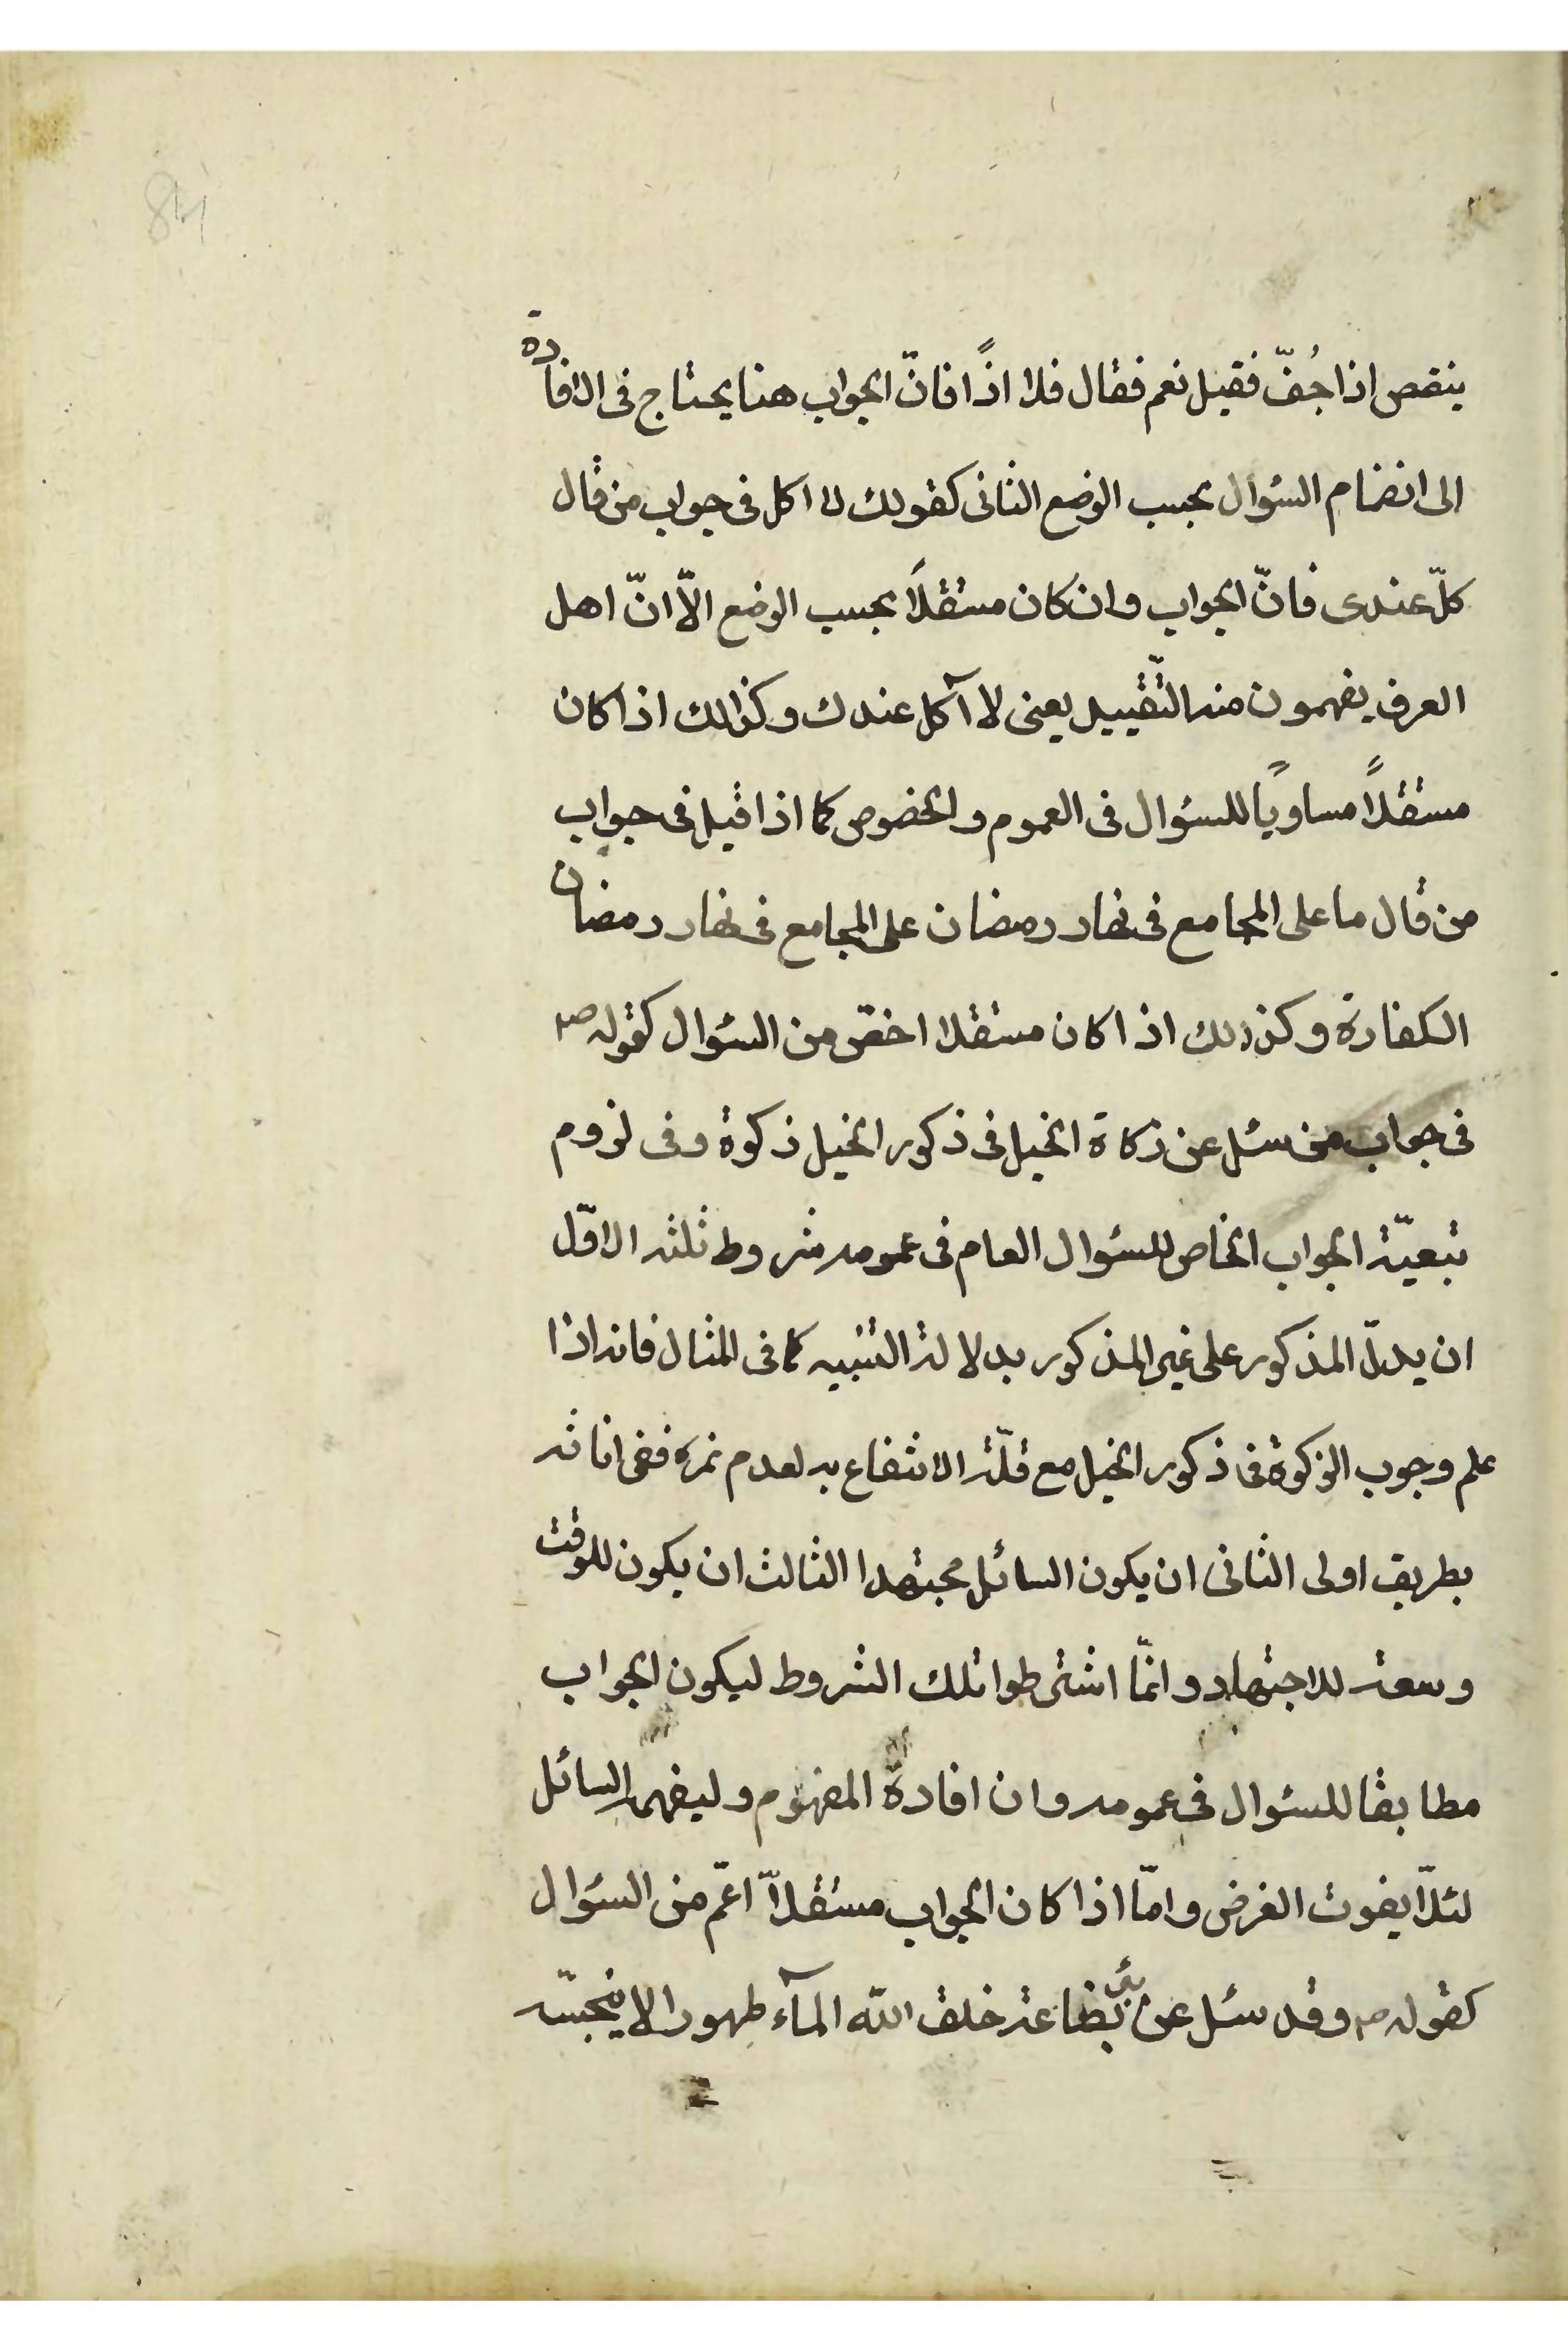 84
ينقص اذا جُفّ فقيل نعم فقال فلا اذًا فانّ الجواب هنا يحتاج فى الافادة
الى انضمام السئوال بحسب الوضع الثانى كقولك لا اكل فى جواب من قال
كلّ عندى فانّ الجواب وان كان مستقلاً بحسب الوضع الاّ انّ اهل
العرف يفهمون منه التّقييد يعنى لا آكل عندك وكذالك اذا كان
مستقلاً مساويًا للسئوال فى العموم والخصوص كما اذا قيل فى جواب
من قال ما على المجامع فى نهار رمضان على المجامع فى نهار رمضان
الكفارة وكذلك اذا كان مستقلا اخصّ من السئوال كقوله صم
فى جواب من سئل عن زكاة الخيل فى ذكور الخيل زكوة وفى لزوم
تبعيّة الجواب الخاص للسئوال العام فى عمومه شروط ثلثه الاوّل
ان يدلّ المذكور على غير المذكور بدلالة التنبيه كما فى المثال فانه اذا
علم وجوب الزكوة فى ذكور الخيل مع قلّة الانتفاع به لعدم نمره ففى اناثه
بطريق اولى الثانى ان يكون السائل مجتهدا الثالث ان يكون للوقت
وسعة للاجتهاد وانّما اشترطوا تلك الشروط ليكون الجواب
مطابقا للسئوال فى عمومه وان افاده المفهوم وليفهم السائل
لئلاّ يفوت الغرض وامّا اذا كان الجواب مستقلاّ اعمّ من السئوال
كقوله صم وقد سئل عن بئر بضاعة خلق الله المآء طهورا لا ينجّسه